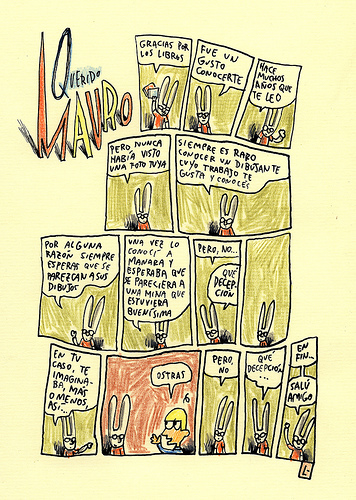 QUERIDO
MAURO
GRACIAS POR
LOS LIBROS
FUE UN
GUSTO
CONOCERTE
HACE
MUCHOS
AÑOS QUE
TE LEO
PERO NUNCA
HABÍA VISTO
UNA FOTO TUYA
SIEMPRE ES RARO
CONOCER UN DIBUJANTE
CUYO TRABAJO TE
GUSTA Y CONOCES
POR ALGUNA
RAZÓN SIEMPRE
ESPERAS QUE SE
PAREZCAN A SUS
DIBUJOS
UNA VEZ LO
CONOCÍ A
MANARA Y
ESPERABA QUE
SE PARECIERA A
UNA MINA QUE
ESTUVIERA
BUENÍSIMA
PERO, NO...
QUÉ
DECEP-
CIÓN
EN TU
CASO, TE
IMAGINA-
BA, MÁS
O MENOS,
ASÍ...
OSTRAS
PERO,
NO
QUÉ
DECEPCIÓN
...
EN
FIN...
SALÚ
AMIGO
L.